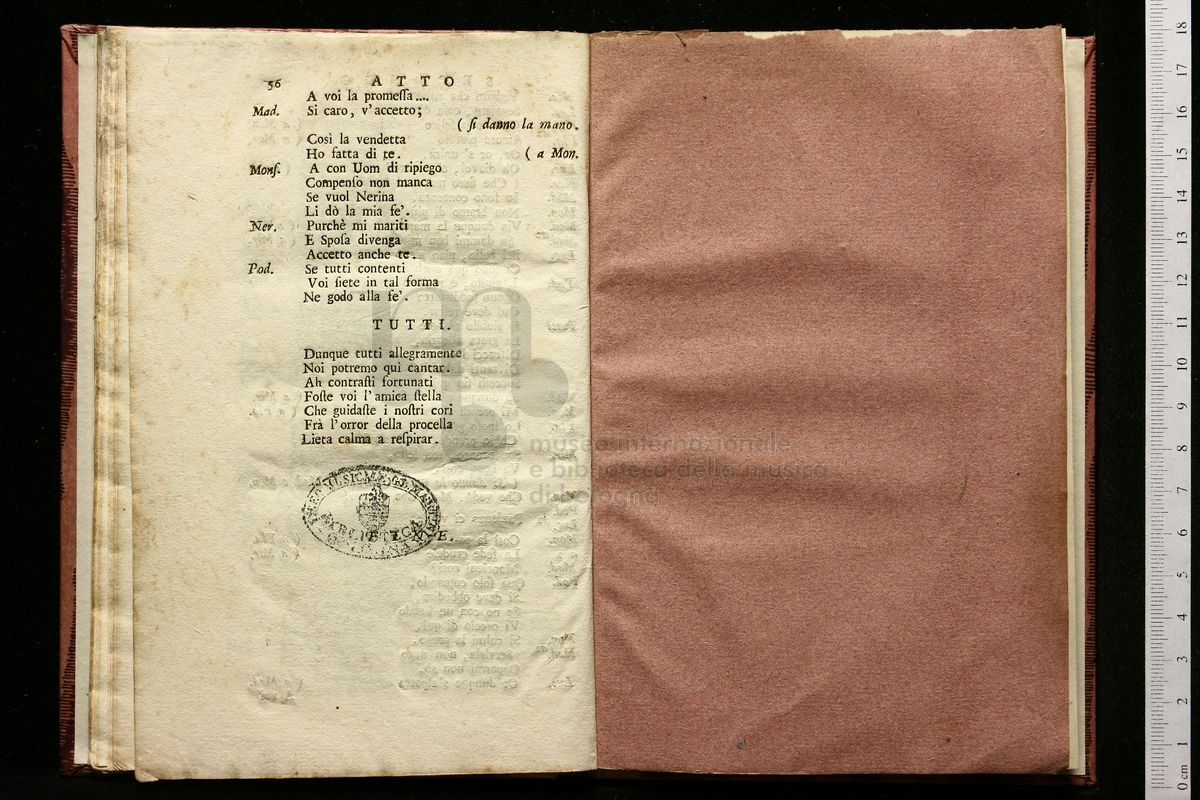 56 ATTO
A voi la promeſſa....
Mad. Si caro, v'accetto;
( ſi danno la mano.
Così la vendetta
Ho fatta di te. ( a Mon.
Monſ. A con Uom di ripiego
Compenſo non manca
Se vuol Nerina
Li dò la mia fe'.
Ner. Purchè mi mariti
E Spoſa divenga
Accetto anche te.
Pod. Se tutti contenti
Voi ſiete in tal forma
Ne godo alla fe'.
TUTTI.
Dunque tutti allegramente
Noi potremo quì cantar.
Ah contraſti fortunati
Foſte voi l'amica ſtella
Che guidaſte i noſtri cori
Frà l'orror della procella
Lieta calma a reſpirar.
museo internazionale
e biblioteca della musica
di bologna
LICEO MUSICALE
BIBLIOTECA
BOLOGNA
0 cm 1 2 3 4 5 6 7 8 9 10 11 12 13 14 15 16 17 18